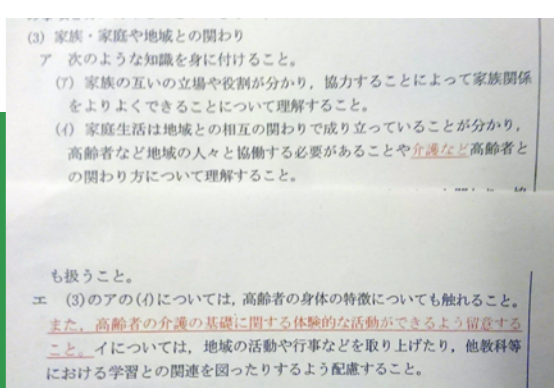 (3) 家族・家庭や地域との関わり
ア 次のような知識を身に付けること。
(ｱ) 家族の互いの立場や役割が分かり，協力することによって家族関係
をよりよくできることについて理解すること。
(ｲ) 家庭生活は地域との相互の関わりで成り立っていることが分かり，
高齢者など地域の人々と協働する必要があることや介護など高齢者と
の関わり方について理解すること。
も扱うこと。
エ (3)のアの(ｲ)については，高齢者の身体の特徴についても触れること。
また，高齢者の介護の基礎に関する体験的な活動ができるよう留意する
こと。イについては，地域の活動や行事などを取り上げたり，他教科等
における学習との関連を図ったりするよう配慮すること。